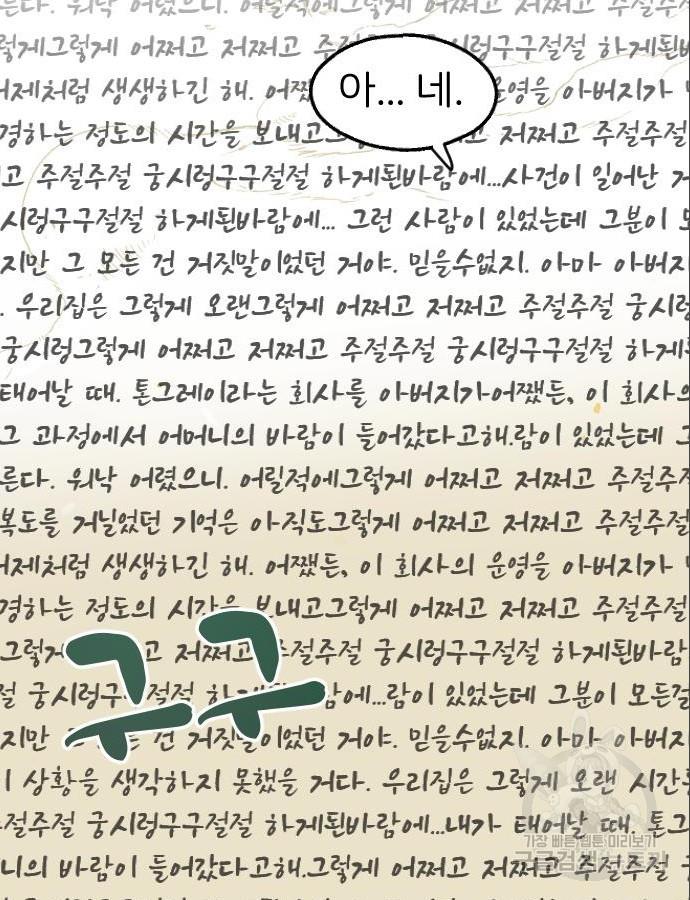 른다. 워낙 어렸으니. 어릴적에그렇게 어쩌고 저쩌고 주절주
렇게그렇게 어쩌고 저쩌고 주 시렁구구절절 하게된바
제처럼 생생하긴 해. 어쨌 운영을 아버지가
아... 네.
경하는 정도의 시간을 보내고그 고 저쩌고 주절주절
고 주절주절 궁시렁구구절절 하게된바람에...사건이 일어난
시렁구구절절 하게된바람에... 그런 사람이 있었는데 그분이 모
지만 그 모든 건 거짓말이었던 거야. 믿을수없지. 아마 아버지
. 우리집은 그렇게 오랜그렇게 어쩌고 저쩌고 주절주절 궁시렁
궁시렁그렇게 어쩌고 저쩌고 주절주절 궁시렁구구절절 하게된
태어날 때. 톤그레이라는 회사를 아버지가어쨌든, 이 회사의
그 과정에서 어머니의 바람이 들어갔다고해.람이 있었는데 그
른다. 워낙 어렸으니. 어릴적에그렇게 어쩌고 저쩌고 주절주
복도를 거닐었던 기억은 아직도그렇게 어쩌고 저쩌고 주절주절
제처럼 생생하긴 해. 어쨌든, 이 회사의 운영을 아버지가
경하는 정도의 시간을 보내고그렇게 어쩌고 저쩌고 주절주절
그렇게 고 저쩌고 주절주절 궁시렁구구절절 하게된바람
구구
절 궁시렁구구절절 하게된바람에...람이 있었는데 그분이 모든걸
지만 그 모든 건 거짓말이었던 거야. 믿을수없지. 아마 아버지
이 상황을 생각하지 못했을 거다. 우리집은 그렇게 오랜 시간
절주절 궁시렁구구절절 하게된바람에...내가 태어날 때. 톤그
가장 빠른 웹툰 미리보기
니의 바람이 들어갔다고해.그렇게 어쩌고 저쩌고 주절주절